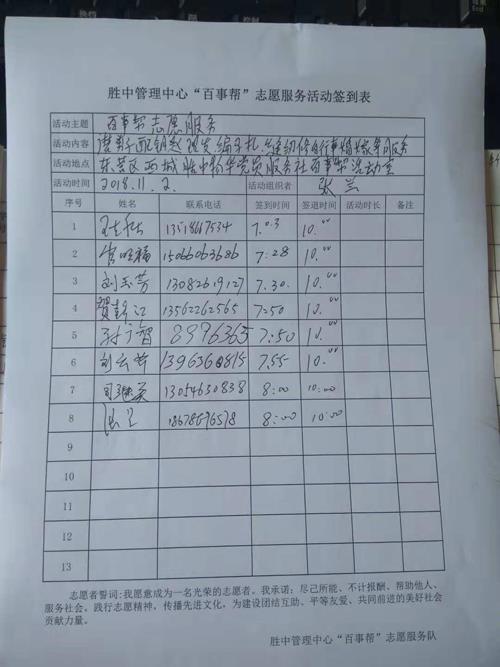 胜中管理中心“百事帮”志愿服务活动签到表
活动主题 百事帮志愿服务
活动内容 磨剪子配钥匙理发
活动地点 东营区西城胜中 党员服务社百事帮活动室
活动时间 2018.11.2. 活动组织者 张兰
序号 姓名 联系电话 签到时间 签退时间 活动时长 备注
1 7.03 10.00
2 15066063686 7:28 10.00
3 刘玉芳 13082619127 7.30. 10.00
4 贺彭江 13562262565 7:50 10.00
5 孙广智 8896365 7:50 10.00
6 13963660815 7.55 10.00
7 13054630838 8:00 10:00
8 8:00 10:00
9
10
11
12
13
志愿者誓词:我愿意成为一名光荣的志愿者。我承诺:尽己所能、不计报酬、帮助他人、
服务社会。践行志愿精神，传播先进文化，为建设团结互助、平等友爱、共同前进的美好社会
贡献力量。
胜中管理中心“百事帮”志愿服务队